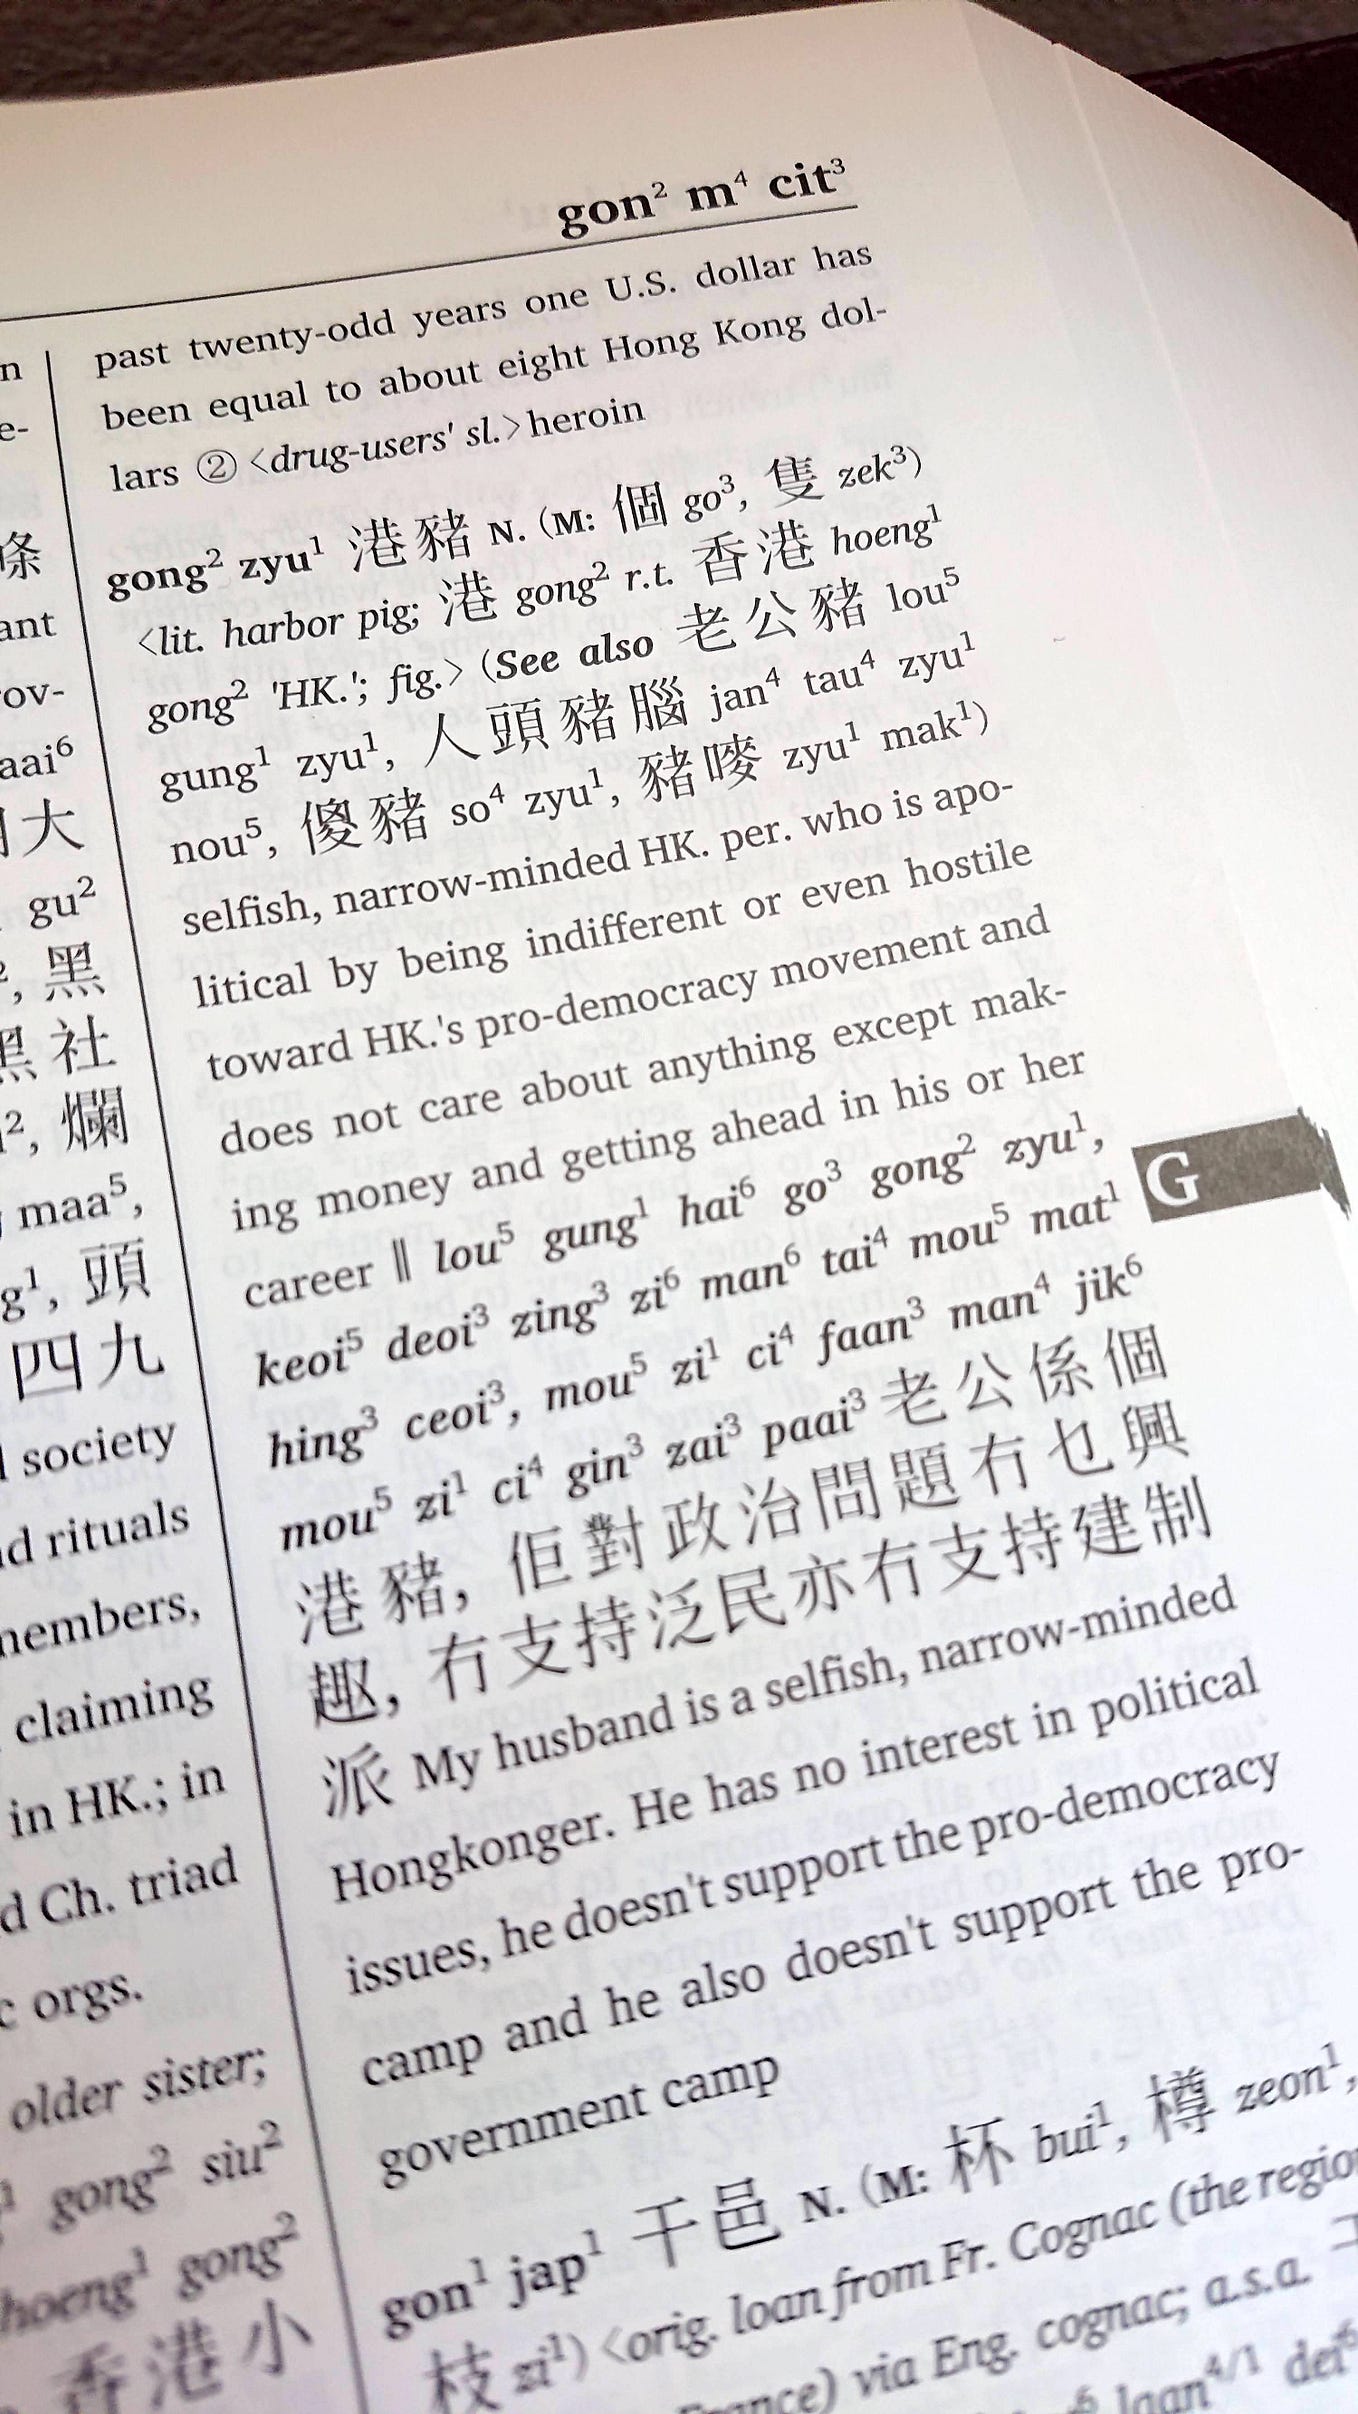 gon² m⁴ cit³
n
e-
條
ant
rov-
aai⁶
大
gu²
², 黑
黑社
², 爛
maa⁵,
g¹, 頭
四九
society
rituals
members,
claiming
in HK.; in
d Ch. triad
orgs.
older sister;
gong² siu²
hoeng¹ gong²
香港小
past twenty-odd years one U.S. dollar has
been equal to about eight Hong Kong dol-
lars ② <drug-users' sl.> heroin
gong² zyu¹ 港豬 N. (M: 個 go³, 隻 zek³)
<lit. harbor pig; 港 gong² r.t. 香港 hoeng¹
gong² 'HK.'; fig.> (See also 老公豬 lou⁵
gung¹ zyu¹, 人頭豬腦 jan⁴ tau⁴ zyu¹
nou⁵, 傻豬 so⁴ zyu¹, 豬嘜 zyu¹ mak¹)
selfish, narrow-minded HK. per. who is apo-
litical by being indifferent or even hostile
toward HK.'s pro-democracy movement and
does not care about anything except mak-
ing money and getting ahead in his or her
career ‖ lou⁵ gung¹ hai⁶ go³ gong² zyu¹,
keoi⁵ deoi³ zing³ zi⁶ man⁶ tai⁴ mou⁵ mat¹
hing³ ceoi³, mou⁵ zi¹ ci⁴ faan³ man⁴ jik⁶
mou⁵ zi¹ ci⁴ gin³ zai³ paai³ 老公係個
港豬, 佢對政治問題冇乜興
趣, 冇支持泛民亦冇支持建制
派 My husband is a selfish, narrow-minded
Hongkonger. He has no interest in political
issues, he doesn't support the pro-democracy
camp and he also doesn't support the pro-
government camp
gon¹ jap¹ 干邑 N. (M: 杯 bui¹, 樽 zeon¹,
枝 zi¹) <orig. loan from Fr. Cognac (the regio
rance) via Eng. cognac; a.s.a.
laan⁴/¹ dei⁶
G